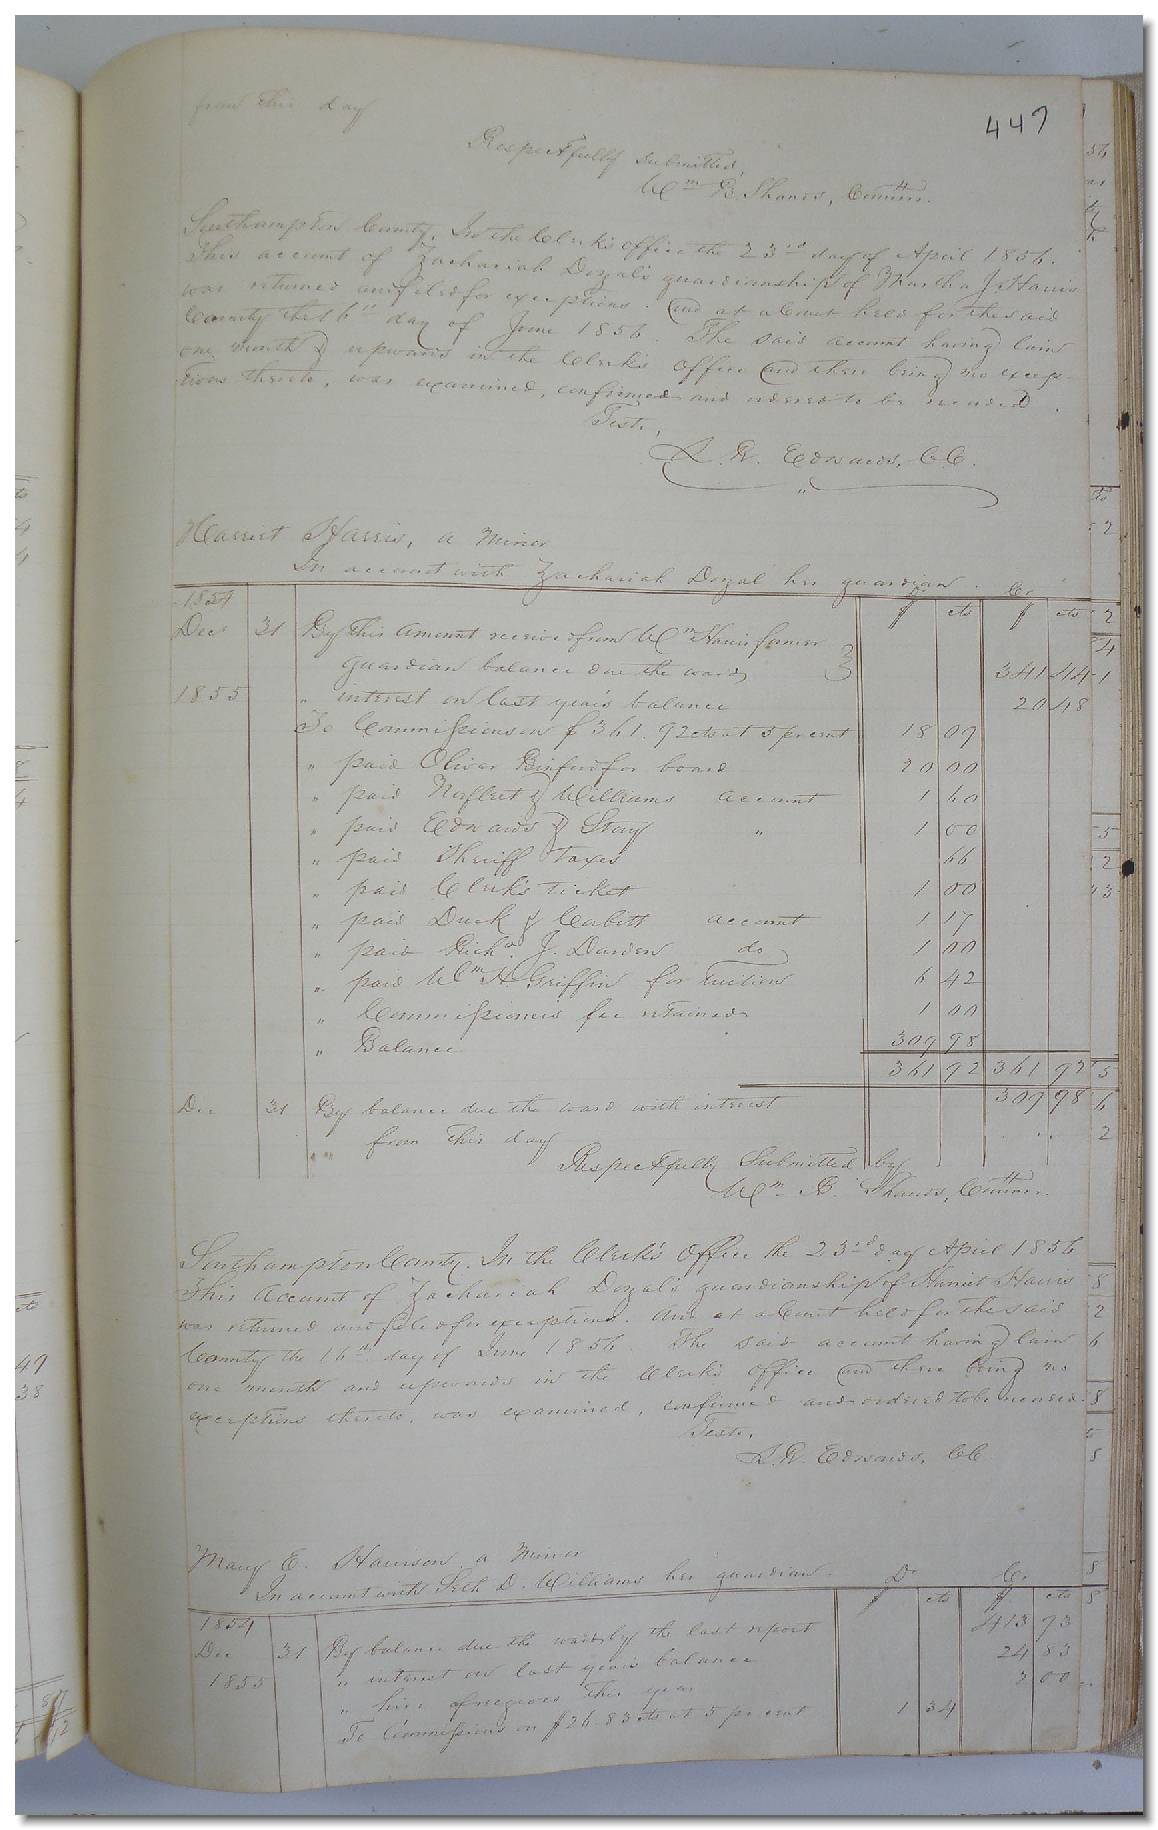 447
from this day
Respectfully submitted,
Wm B. Shands, Commr.
Southampton County. In the Clerk's office the 23rd day of April 1856.
This account of Zachariah Doyal's guardianship of Martha J. Harris
was returned and filed for exceptions. And at a Court held for the said
County the 16th day of June 1856. The said account having lain
one month & upwards in the Clerk's Office and there being no excep-
tions thereto, was examined, confirmed and ordered to be recorded.
Teste,
L. R. Edwards, C.C.
Harriet Harris, a Minor
In account with Zachariah Doyal her guardian Cr.
1854 $ cts $ cts
Dec 31 By this amount received from Wm Harris former
guardian balance due the ward 341 44
1855 " interest on last year's balance 20 48
To Commissions on $361.92 cts at 5 pr cent 18 09
" paid Oliver Binford for board 20 00
" paid Norfleet & Williams account 1 60
" paid Edwards & Story " 1 00
" paid Sheriff Taxes 66
" paid Clerk's ticket 1 00
" paid Duck & Cobitt account 1 17
" paid Richd. J. Darden do 1 00
" paid Wm H Griffin for Tuition 6 42
" Commissioner's fee retained 1 00
" Balance 309 98
361 92 361 92
Dec 31 By balance due the ward with interest 309 98
" " from this day
Respectfully Submitted by
Wm. B. Shands, Commr.
Southampton County. In the Clerk's Office the 23rd day April 1856
This Account of Zachariah Doyal's guardianship of Harriet Harris
was returned and filed for exceptions. And at a Court held for the said
County the 16th day of June 1856 The said account having lain
one month and upwards in the Clerk's Office and there being no
exceptions thereto, was examined, confirmed and ordered to be recorded.
Teste,
L. R. Edwards, C.C.
Mary E. Harrison a Minor
In account with Seth D. Williams her guardian. Dr Cr.
1854 $ cts $ cts
Dec 31 By balance due the ward by the last report 413 93
1855 " interest on last year's balance 24 83
" hire of negroes this year 3 00
To Commissions on $26.83 cts at 5 pr cent 1 34